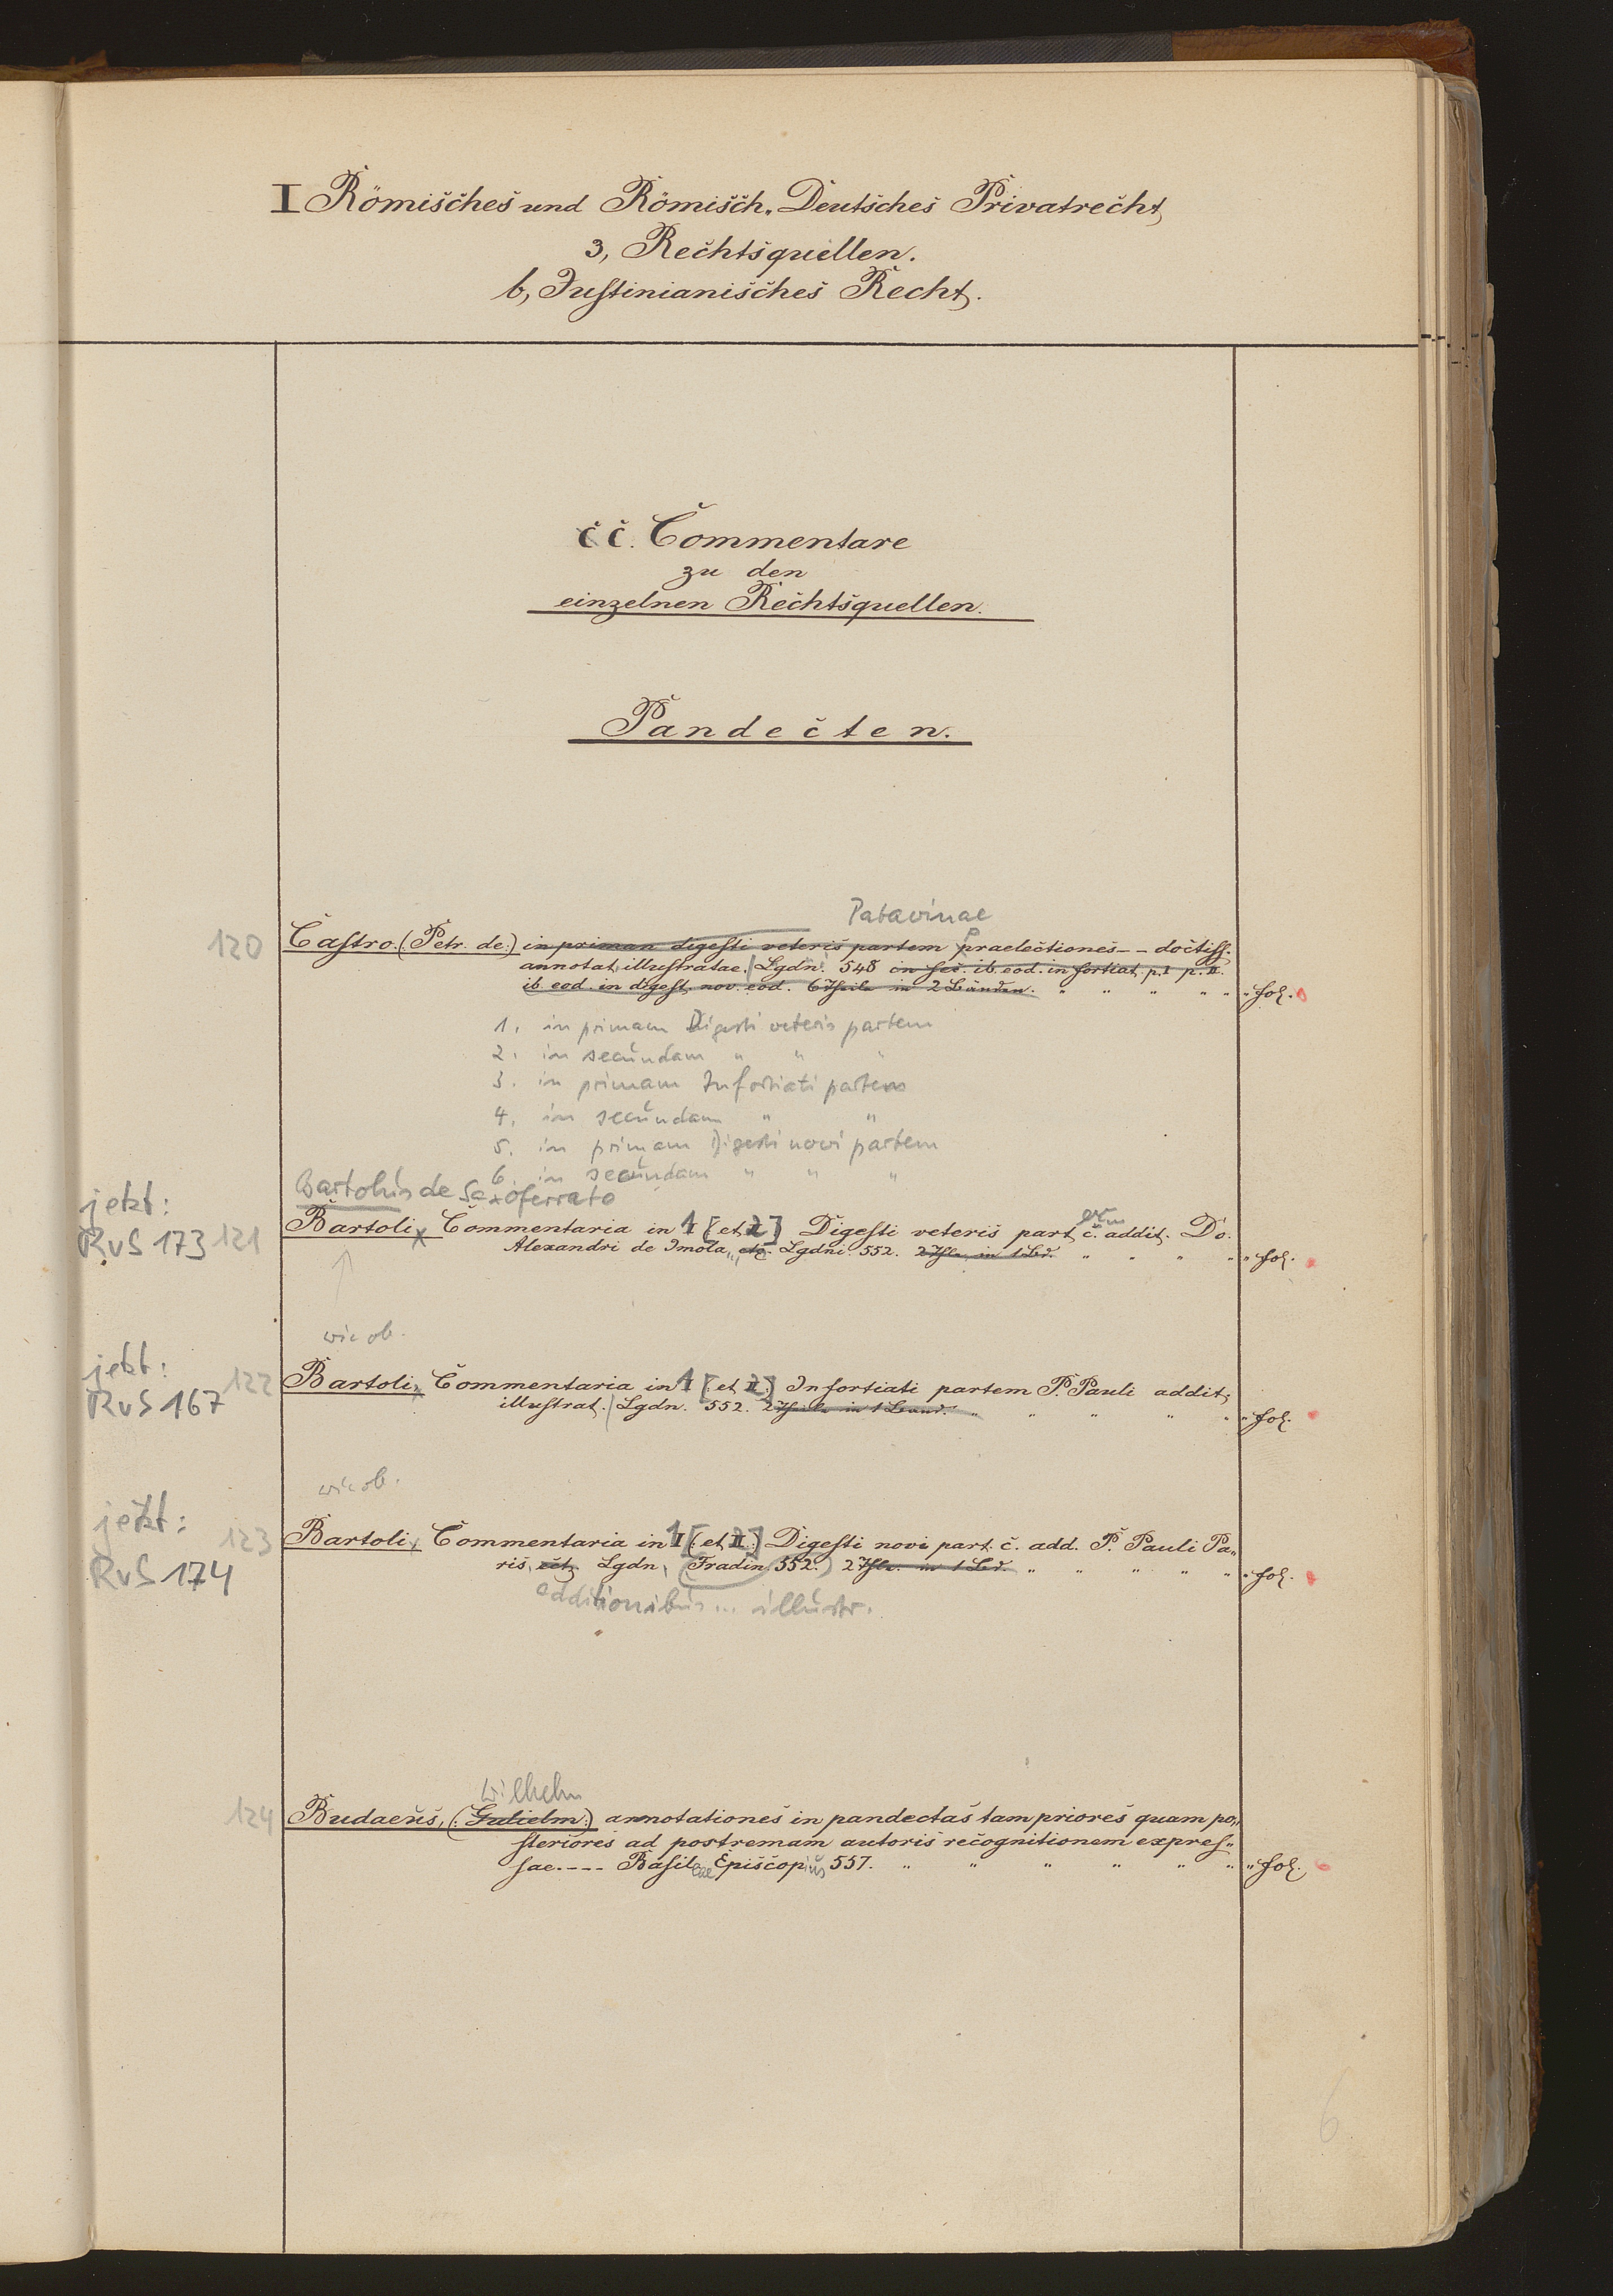 I Römisches und Römisch-Deutsches Privatrecht,
3, Rechtsquellen.
b, Justinianisches Recht.
c c. Commentare
zu den
einzelnen Rechtsquellen.
Pandecten.
Patavinae
120 Castro. (Petr. de:) in priman digesti veteris partem praelectiones -- doctiss.
annotat. illustratae. Lgdn. 548 in sec. ib. eod. in fortiat. p. I p. II.
ib. eod. in digest. nov. eod. 6 Theile in 2 Bänden. " " " " " " fol.
1. in primam Digesti veteris partem
2. in secundam " " "
3. in primam Infortiati partem
4. in secundam " "
5. in primam Digesti novi partem
6. in secundam " " "
Bartolus de Saxoferrato
jetzt:
RvS 173 121 Bartoli, Commentaria in I [et II] Digesti veteris part. c. addit. Do.
Alexandri de Imola, etc. Lgdni. 552. 2 Thle. in 1 Bd. " " " " " fol.
wie ob.
jetzt:
RvS 167 122 Bartoli, Commentaria in I [et II] Infortiati partem P. Pauli addit.
illustrat. Lgdn. 552. 2 Theile in 1 Band. " " " " " " fol.
wie ob.
jetzt:
RvS 174 123 Bartoli, Commentaria in I [et II] Digesti novi part. c. add. P. Pauli Pa-
ris, ect. Lgdn, (Fradin 552.) 2 Thle. in 1 Bd. " " " " " " fol.
additionibus ... illustr.
Wilhelm
124 Budaeus, (Gulielm:) annotationes in pandectas tam priores quam po-
steriores ad postremam autoris recognitionem expres-
sae. --- Basileae Episcopius 557. " " " " " " " fol.
6